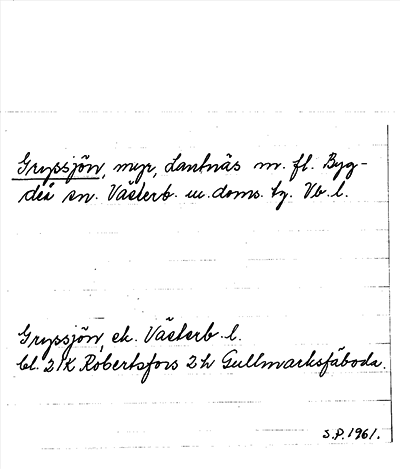 Gryssjön, myr, Lantnäs m. fl. Byg-
deå sn. Västerb. u. doms. tg. Vb. l.
Gryssjön, ek. Västerb. l.
bl. 21K Robertsfors 2h Gullmarksfäboda.
S.P. 1961.